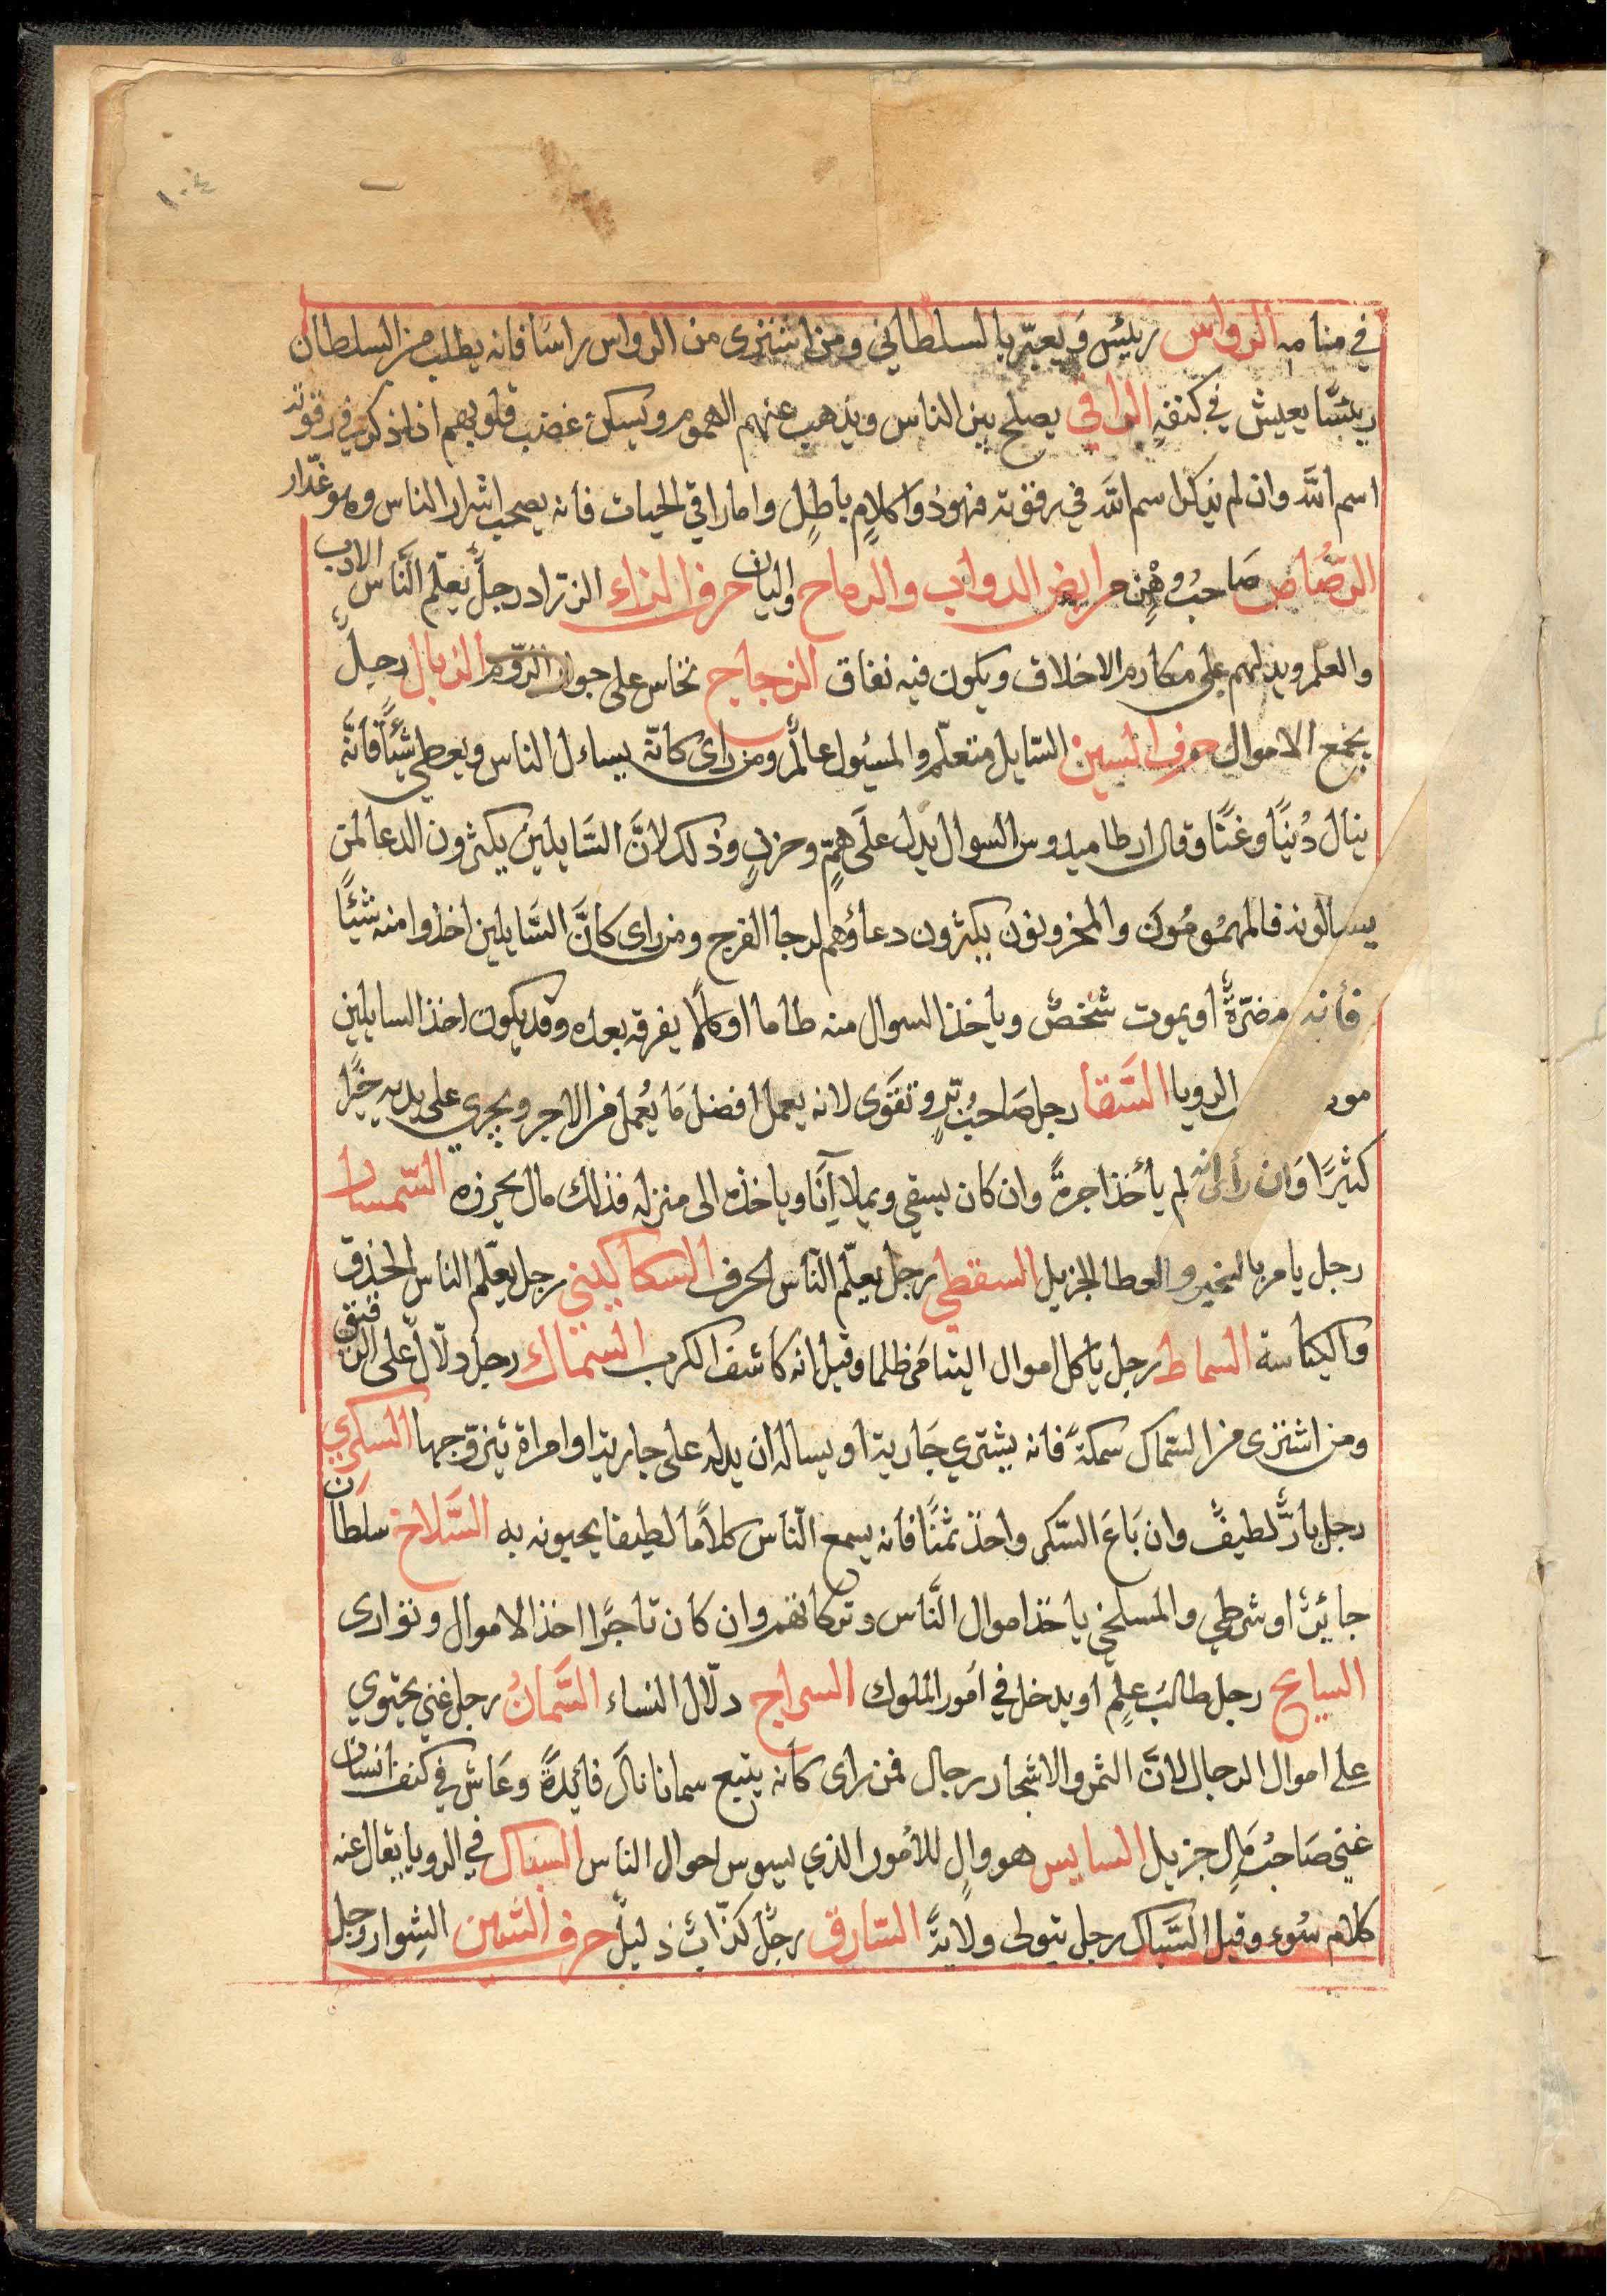 ١٠٤
في منامه الرواس رييس ويعبّر بالسلطاني ومن اشترى من الرواس راسًا فانه يطلب من السلطان
رييسًا يعيش في كنفهِ الراقي يصلح بين الناس ويذهب عنهم الهموم ويسكن غضب قلوبهم اذا ذكر في رقوته
اسم اللّه وان لم يذكر اسم اللّه في رقوته فهو ذوا كلامٍ باطلٍ واما راقي الحيات فانه يصحب اشرار الناس وهو غدّار
الرصّاص صَاحبُ وهْنٍ مرابض الدواب والرماح واليان حرف الزاء الزرّاد رجلٌ يعلّم النّاس الادب
والعلم ويدلهم على مكارم الاخلاق ويكون فيه نفاق الزجاج نخاس على جوار الرّوم الزبال رجلٌ
يجمع الاموال حرف السين السّايل متعلّم والمسئول عالمٌ ومن راى كانّه يساءل الناس ويعطى شيئًا فانّه
ينال دُنيًا وغنًا وقال ارطاميدوس السوال يدل علَى همٍّ وحزنٍ وذلك لانَّ السَّايلين يكثرون الدعا لمن
يسالونه فالمهمُومُون والمحزونون يكثرون دعاؤهم لرجا الفرج ومن راى كانَّ السَّايلين اخذوا منه شيئًا
فانه مضرّةٌ او يموت شخصٌ وياخذ السوال منه طاما او كلاًا يفرقه بعده وقد يكون اخذ السايلين
الرويا السَّقا رجل صَاحبُ برٍّ وتقوَى لانه يعمل افضل مَا يُعمل من الاجر ويجري على يديه خيرًا
كثيرًا وَان رأى انه لم يأخذ اجرةً وان كان يسقي ويملا آنًا وياخذه الى منزله فذلك مال يحرزه السّمسار
رجل يامر بالخير والعطا الجزيل السقطي رجل يعلّم النّاس الحرف السكاكيني رجل يعلّم الناس الحذق
والكياسة السماط رجل ياكل اموال اليتامَى ظلما وقيل انه كاشف الكرب السماك رجل دلّالٌ على الرقيق
ومن اشترى من السّماك سمكةً فانه يشتري جَارية او يساله ان يدله على جارية او امراة يتزوّجها السكري
رجل بارٌّ لطيفٌ وان بَاعَ السّكر واخذ ثمنًا فانه يسمع النّاس كلامًا لطيفا يحيونه به السَّلاخ سلطان
جايرٌ او شرطي والمسلخي ياخذ اموال النَّاس وتركاتهم وان كان تاجرًا اخذ الاموال وتوارى
السايح رجل طالبَ علمٍ او يدخل في امُور الملوك السراج دلّال النساء السَّمانُ رجل غني يحتوي
على اموال الرجال لانَّ الثمر والاشجار رجال فمن راى كانه يتبع سمانا نالَ فائدةً وعَاش في كنف انسان
غني صَاحبُ مَالٍ جزيل السايس هو والٍ للأمُور الذي يسوس احوال الناس السباك في الرويا يقال عنه
كلام سُوء وقيل السَّبّاك رجل يتولى ولايةً السّارق رجلٌ كذّابٌ ذليلٌ حرف الشين الشوار رجل